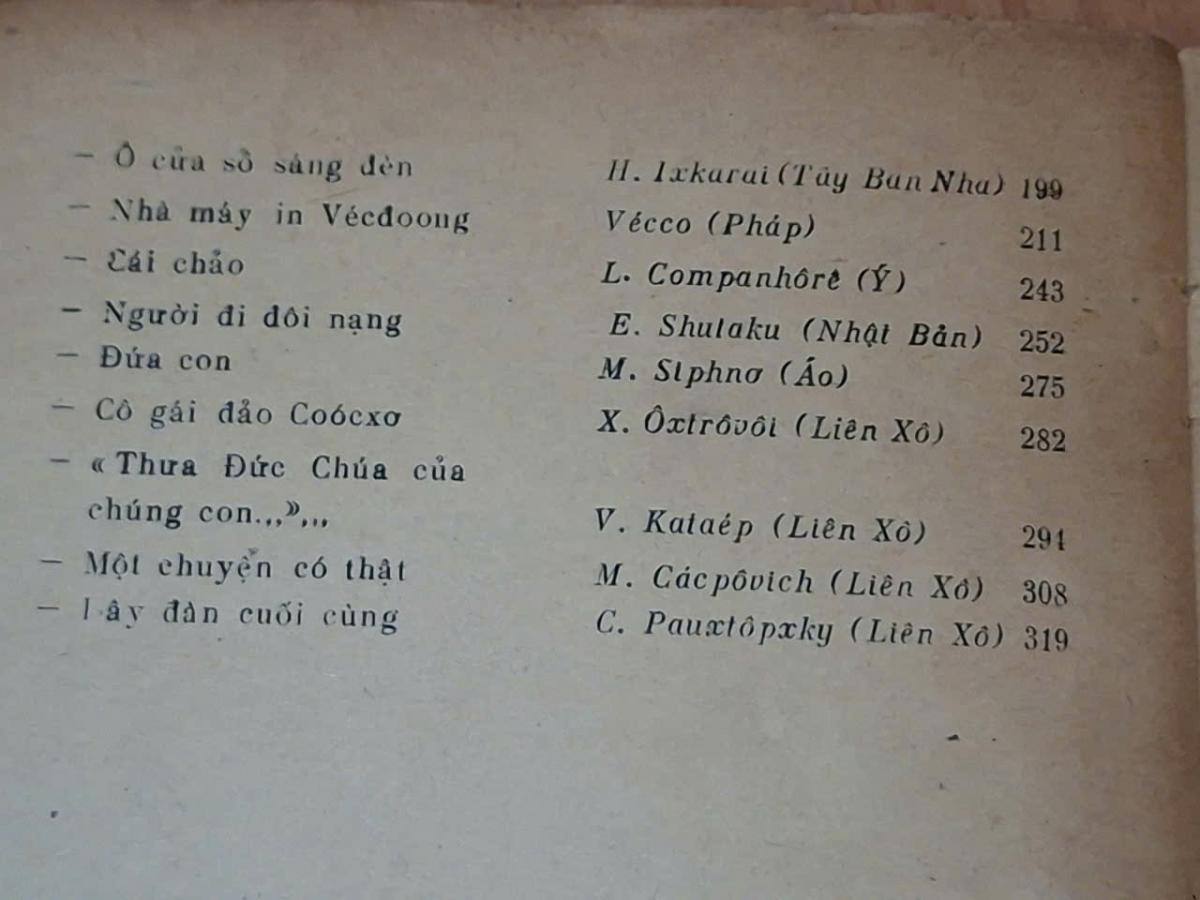 — Ô cửa sổ sáng đèn H. Ixkarai (Tây Ban Nha) 199
— Nhà máy in Vécđoong Vécco (Pháp) 211
— Cái chảo L. Companhôrê (Ý) 243
— Người đi đôi nạng E. Shutaku (Nhật Bản) 252
— Đứa con M. Stphnơ (Áo) 275
— Cô gái đảo Coócxơ X. Ôxtrôvôi (Liên Xô) 282
— « Thưa Đức Chúa của
chúng con..,»,,, V. Kataép (Liên Xô) 294
— Một chuyện có thật M. Cácpôvich (Liên Xô) 308
— đàn cuối cùng C. Pauxtôpxky (Liên Xô) 319